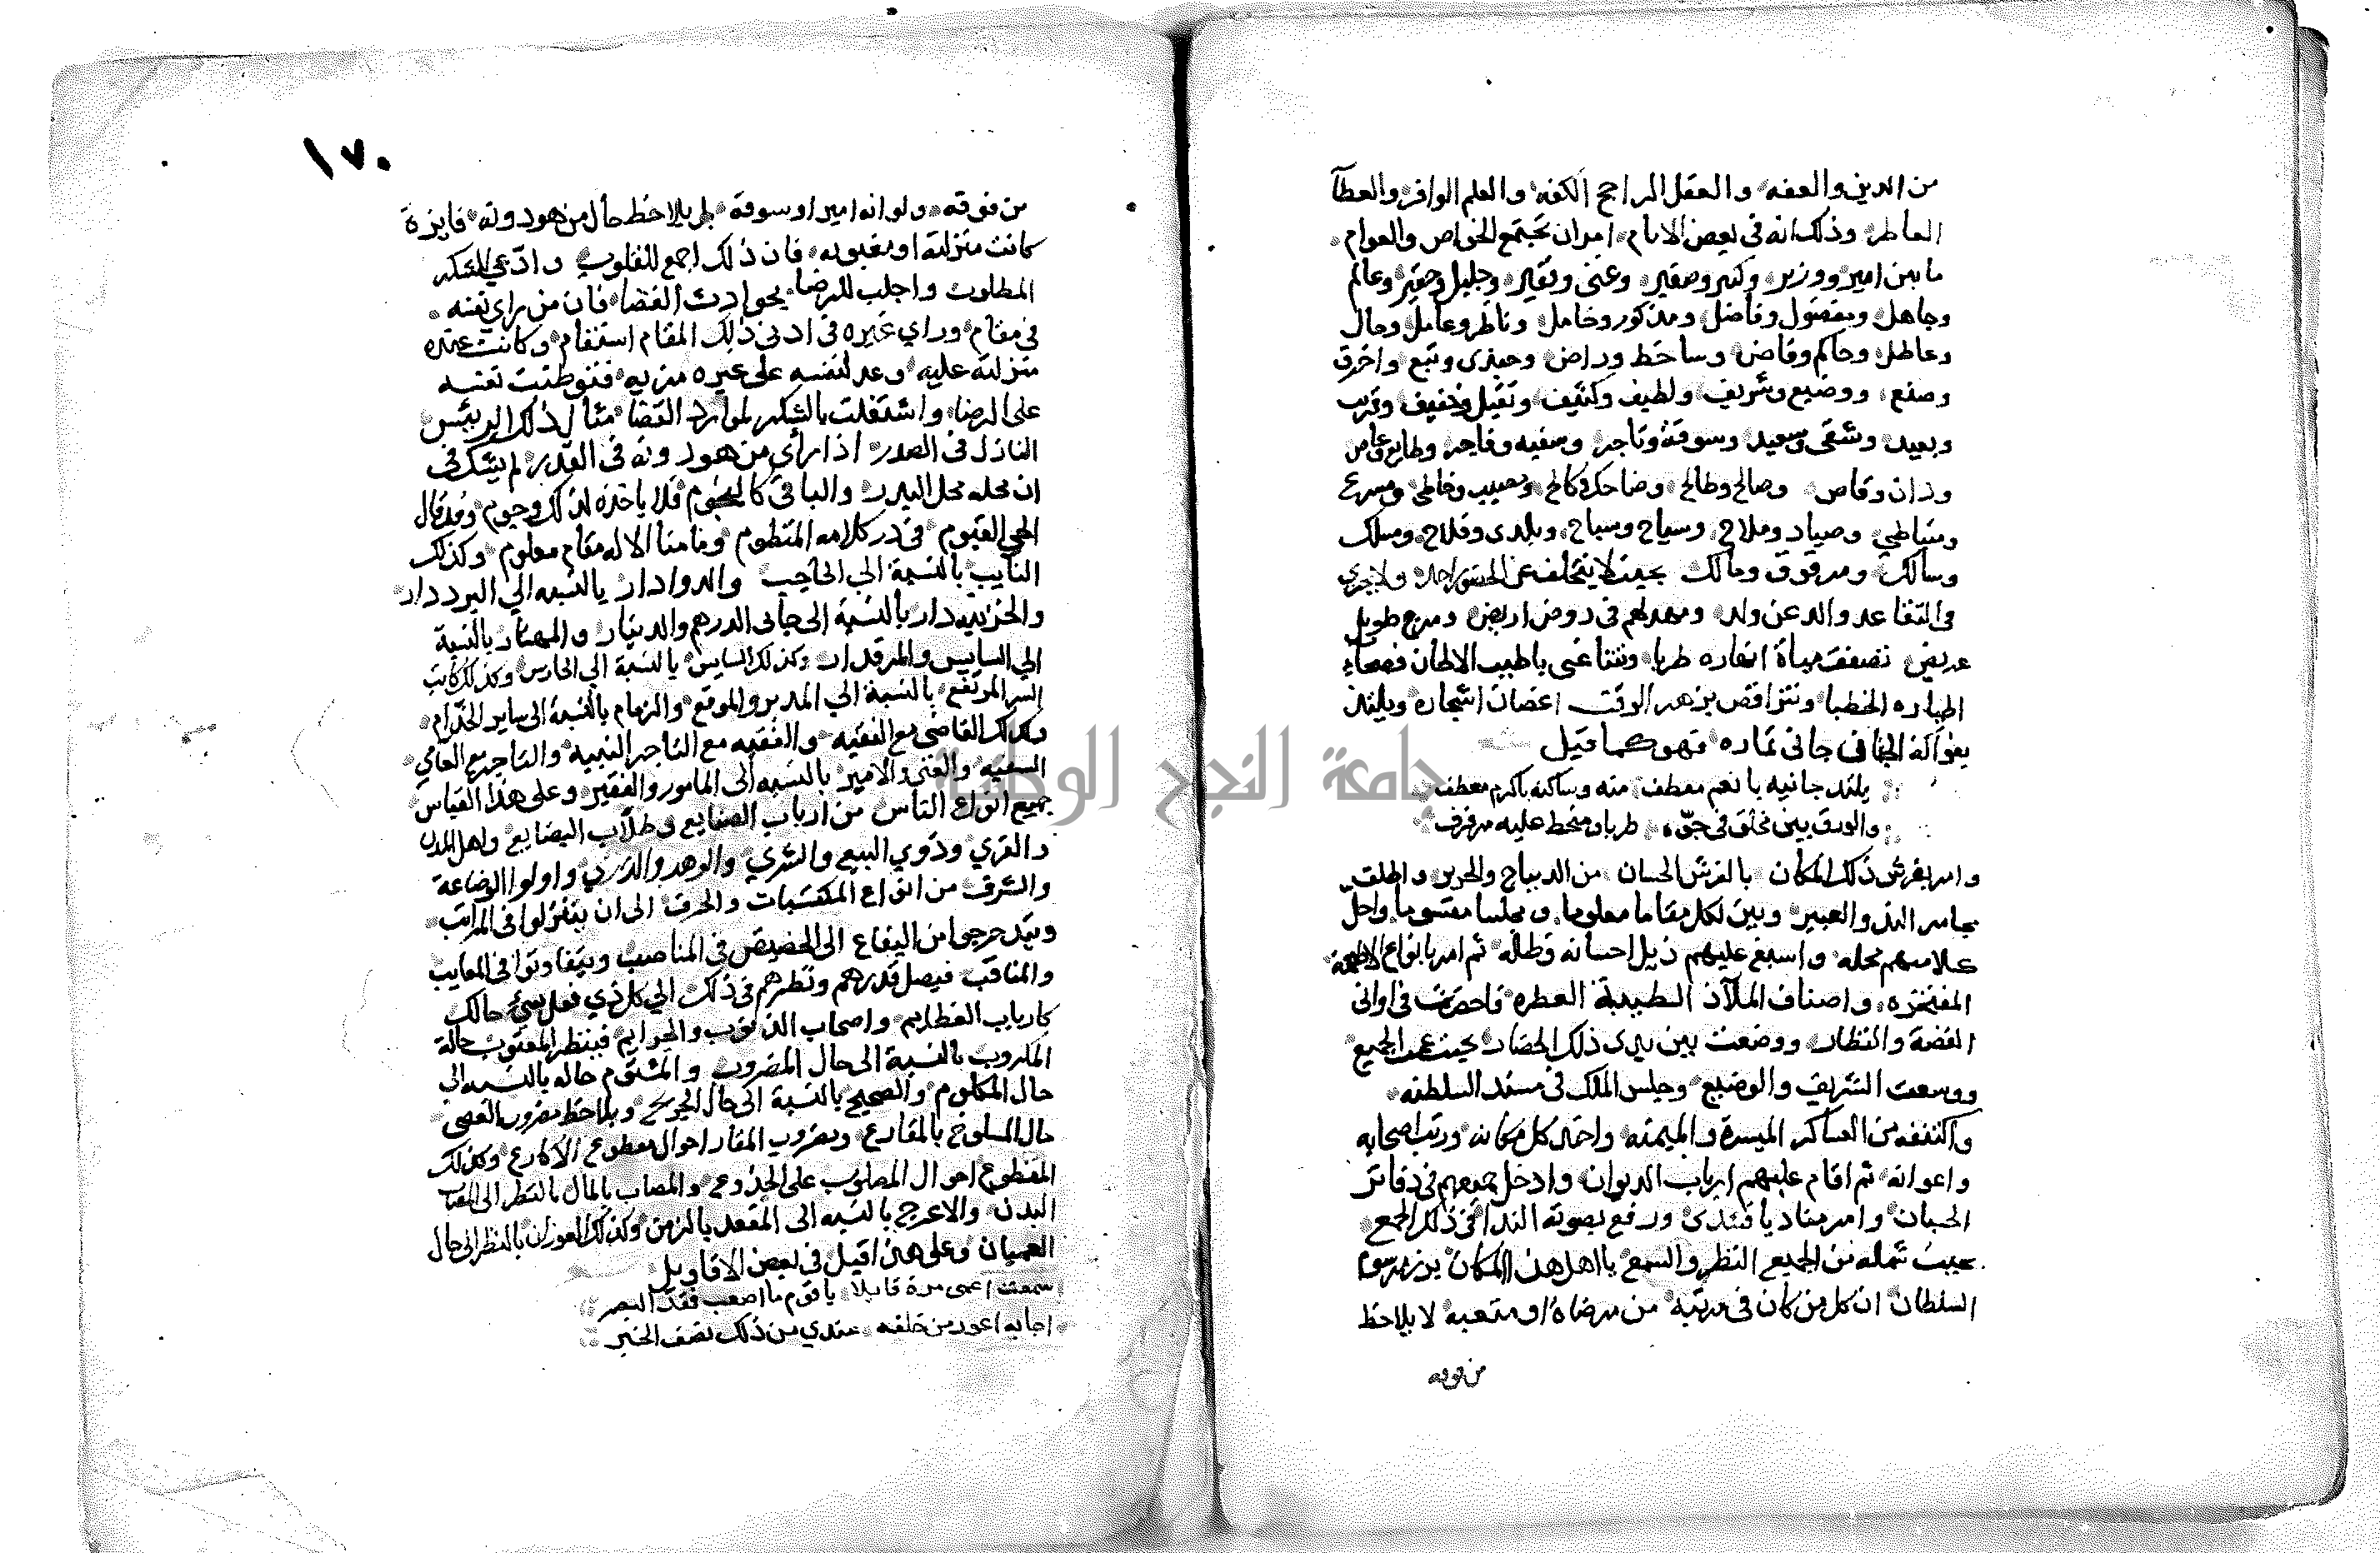 من الدين والعفه والعقل الراجح الكفه والعلم الوافر والعطآ
العاطر وذلك انه في بعض الايام امر ان تجتمع الخواص والعوام
ما بين امير ووزير وكبير وصغير وغنى وفقير وجليل وحقير وعالم
وجاهل ومفضول وفاضل ومذكور وخامل وناظر وعامل وحال
وعاطل وحاكم وقاض وساخط وراض وجندى وتبع واخرق
وصنع ووضيع وشريف ولطيف وكثيف وثقيل وخفيف وقريب
وبعيد وشقى وسعيد وسوقة وتاجر وسفيه وفاجر وطايع وعاص
ودان وقاص وصالح وطالح وضاحك وكالح ومصيب وخاطى ومسرع
ومتباطى وصياد وملاح وسياح وسباح وبلدى وفلاح ومملك
وسالك ومرقوق ومالك بحيث لا يتخلف عن الحضور احد ولا يجزى
في التقاعد والد عن ولد ومهد لهم في روض اريض ومرج طويل
عريض تصفق مياة انهاره طربا وتتناغى باطيب الالحان فصحاء
اطياره الخطبا وتتراقص بزهر الوقت اغصان اشجاره ويلتذ
بفواكه الجنا فى جانى ثماره فهو كما قيل
يلتذ جانيه بانعم معطف منه وساكنه باكرم معطف
والورق بين محلق في جوه طربا ومنحط عليه مرفرف
وامر بفرش ذلك المكان بالفرش الحسان من الديباج والحرير واطلق
مجامر الند والعبير وبين لكل مقاما معلوما ومجلسا مقسوما واحل
كلا منهم محله واسبغ عليهم ذيل احسانه وظله ثم امر بانواع الاطعمة
المفتخره واصناف الملآذ الطيبة العطره فاحضرت في اوانى
الفضة والنظار ووضعت بين يدى ذلك الحضار بحيث عمت الجميع
ووسعت الشريف والوضيع وجلس الملك في مسند السلطنه
واكتنفه من العساكر الميسرة والميمنه واخذ كل مكانه ورتب اصحابه
واعوانه ثم اقام عليهم ارباب الديوان وادخل جميعهم في دفاتر
الحسبان وامر مناديا فنادى ورفع بصوته الندآ في ذلك الجمع
بحيث شمله من الجميع النظر والسمع يا اهل هذا المكان برز مرسوم
السلطان ان كل من كان في مرتبة من مرضاة او متعبة لا يلاحظ
من فوقه
١٧٠
من فوقه ولو انه امير او سوقة بل يلاحظ حال من هو دونه فايزة
كانت منزلته او مغبونه فان ذلك اجمع للقلوب وادعي للشكر
المطلوب واجلب للرضا بحوادث القضا فان من راي نفسه
في مقام وراي غيره في ادنى ذلك المقام استقام وكانت عنده
منزلته عليه وعد لنفسه على غيره مزيه فتوطنت نفسه
على الرضا واشتغلت بالشكر لموارد القضا مثال ذلك الرييس
النازل في الصدر اذا رأى من هو دونه في القدر لم يشك في
ان محله محل البدر والباقي كالنجوم فلا ياخذه لذلك وجوم وقد قال
الحي القيوم في در كلامه المنظوم وما منا الا له مقام معلوم وكذلك
النايب بالنسبة الي الحاجب والدوادار بالنسبه الي البرددار
والخزنيه دار بالنسبة الى جابى الدرهم والدينار والمهتار بالنسبة
الي السايس والمرقدار وكذلك السايس بالنسبة الي الحارس وكذلك كاتب
السر المرتفع بالنسبة الي المدبر والموقع والزمام بالنسبة الى ساير الخدام
وكذلك القاضى مع الفقيه والفقيه مع التاجر النبيه والتاجر مع العامي
السفيه والغنى والامير بالنسبه الى المامور والفقير وعلى هذا القياس
جميع انواع الناس من ارباب الصنايع وطلاب البضايع واهل المدن
والقري وذوي البيع والشري والوهد والذري واولوا الوضاعة
والشرف من انواع المكتسبات والحرف الى ان يتنزلوا فى المراتب
ويتدحرجوا من اليفاع الى الحضيض في المناصب ويتفاوتوا في المعايب
والمناقب فيصل قدرهم ونظرهم في ذلك الي كل ذي فعل سيء حالك
كارباب العظايم واصحاب الذنوب والجرايم فينظر المعتوب حالة
المكروب بالنسبة الى حال المضروب والمشتوم حاله بالنسبه الي
حال المكلوم والصحيح بالنسبة الى حال الجريح ويلاحظ مضروب العصى
حال المسلوخ بالمقارع ومضروب المقارع احوال مقطوع الاكارع وكذلك
المقطوع احوال المصلوب على الجذوع والمصاب بالمال بالنظر الى المصاب
البدن والاعرج بالنسبه الى المقعد بالزمن وكذلك العوران بالنظر الى حال
العميان وعلى هذا قيل في بعض الاقاويل
سمعت اعمى مرة قايلا يا قوم ما اصعب فقد البصر
اجابه اعور من خلفه عندي من ذلك نصف الخبر
جامعة النجاح الوطنية